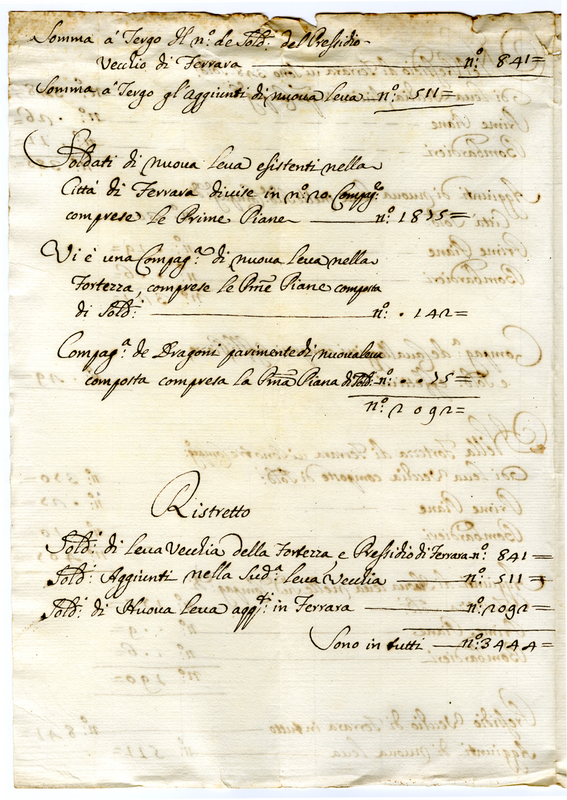 Somma à Tergo Il nº. de Sold.ⁱ del Pressidio
Vecchio di Ferrara — nº. 841=
Somma à Tergo gl'Aggiunti di nuova leva — nº. 511=
Soldati di nuova leva esistenti nella
Città di Ferrara divise in nº. 20. Compag.ᵉ
comprese le Prime Piane — nº. 1875=
Vi è una Compag.ᵃ di nuova leva nella
Fortezza, comprese le Pme Piane composta
di Sold.ⁱ — nº. . 142=
Compag.ᵃ de Dragoni parimente di nuova leva
composta compresa la Pma Piana di Sold.ⁱ nº. . . 75=
nº. 2092=
Ristretto
Sold.ⁱ di leva Vecchia della Fortezza e Pressidio di Ferrara nº. 841=
Sold.ⁱ Aggiunti nella Sud.ᵃ leva Vecchia — nº. 511=
Sold.ⁱ di Nuova leva agg.ᵗⁱ in Ferrara — nº. 2092=
Sono in tutti — nº. 3444=